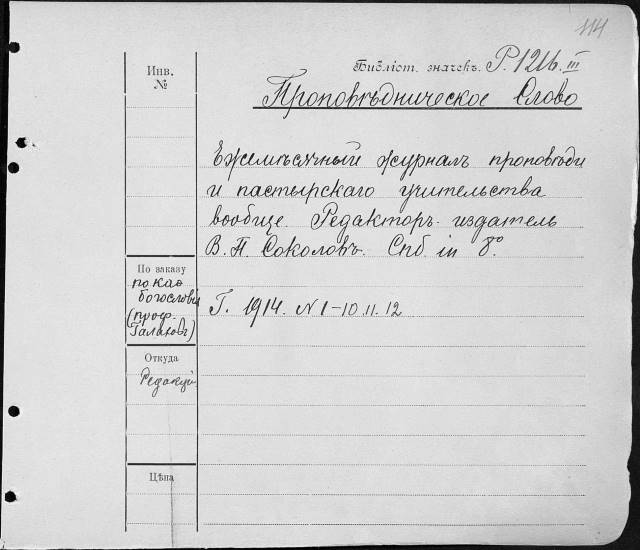 114
Библіот. значекъ. P. 121b. III
Проповѣдническое Слово
Инв.
№
Ежемѣсячный журналъ проповѣди
и пастырскаго учительства
вообще. Редакторъ-издатель
В. П. Соколовъ. Спб. in 8°.
По заказу
по каѳ
богословія
(проф.
Галаховъ)
Г. 1914. N 1-10. 11. 12
Откуда
Редакціи
Цѣна